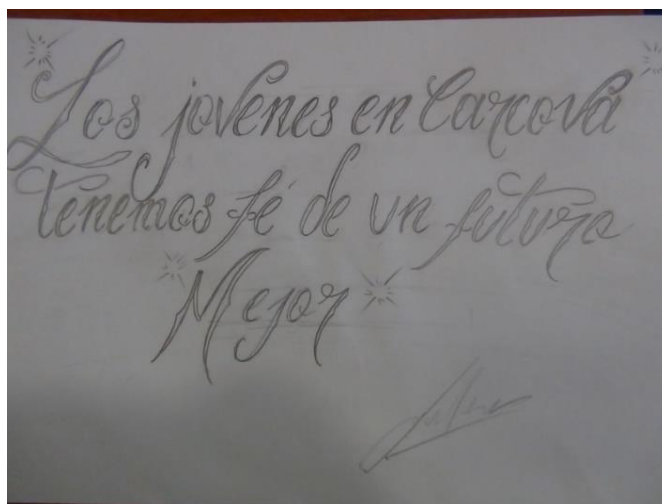 Los jovenes en Carcova
tenemos fé de un futuro
Mejor